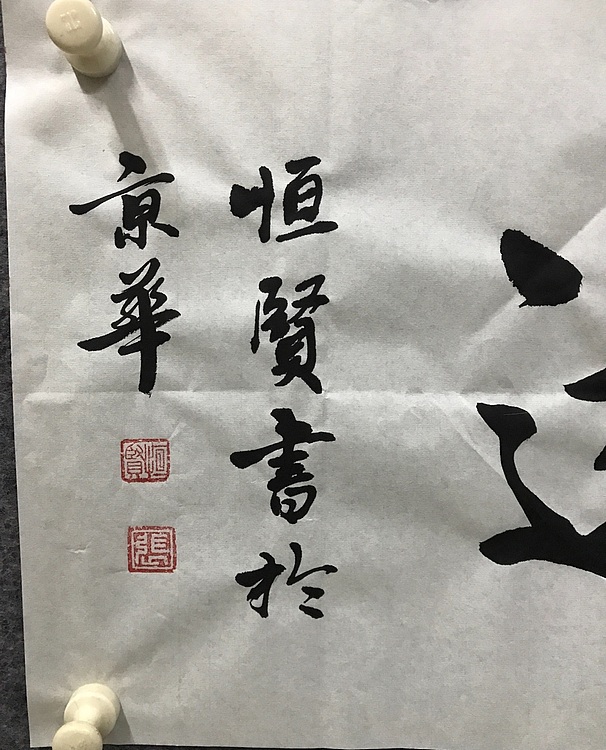 恒賢書於
京華
恒賢
張